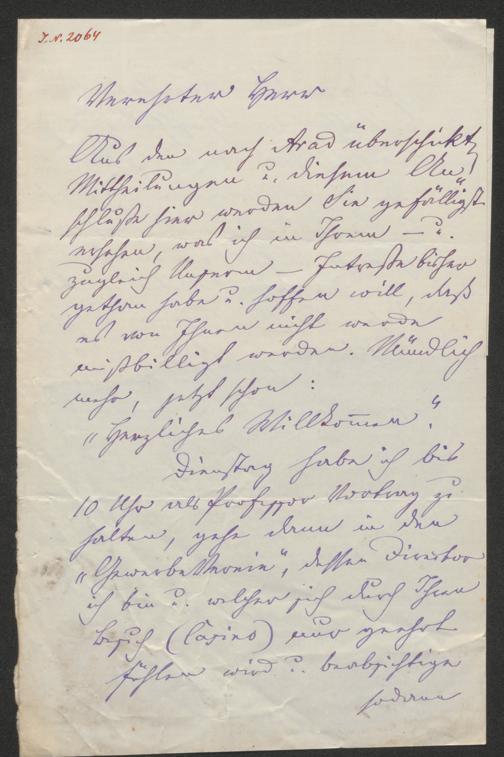 J.N. 2064
Verehrter Herr
Aus den nach Arad überschickt.
Mittheilungen u. diesem An-
schluße hier werden Sie gefälligst
ersehen, was ich in Ihrem – u.
zugleich Unserm – Intreße bisher
gethan habe u. hoffen will, daß
es von Ihnen nicht werde
mißbilligt werden. Mündlich
mehr, jetzt schon:
„Herzliches Willkommen“.
Dienstag habe ich bis
10 Uhr als Professor Vortrag zu
halten, gehe dann in den
„Gewerbe Verein“, dessen Director
ich bin u. welcher sich durch Ihren
Besuch (Casino) nur geehrt
fühlen wird u. beabsichtige
sodann